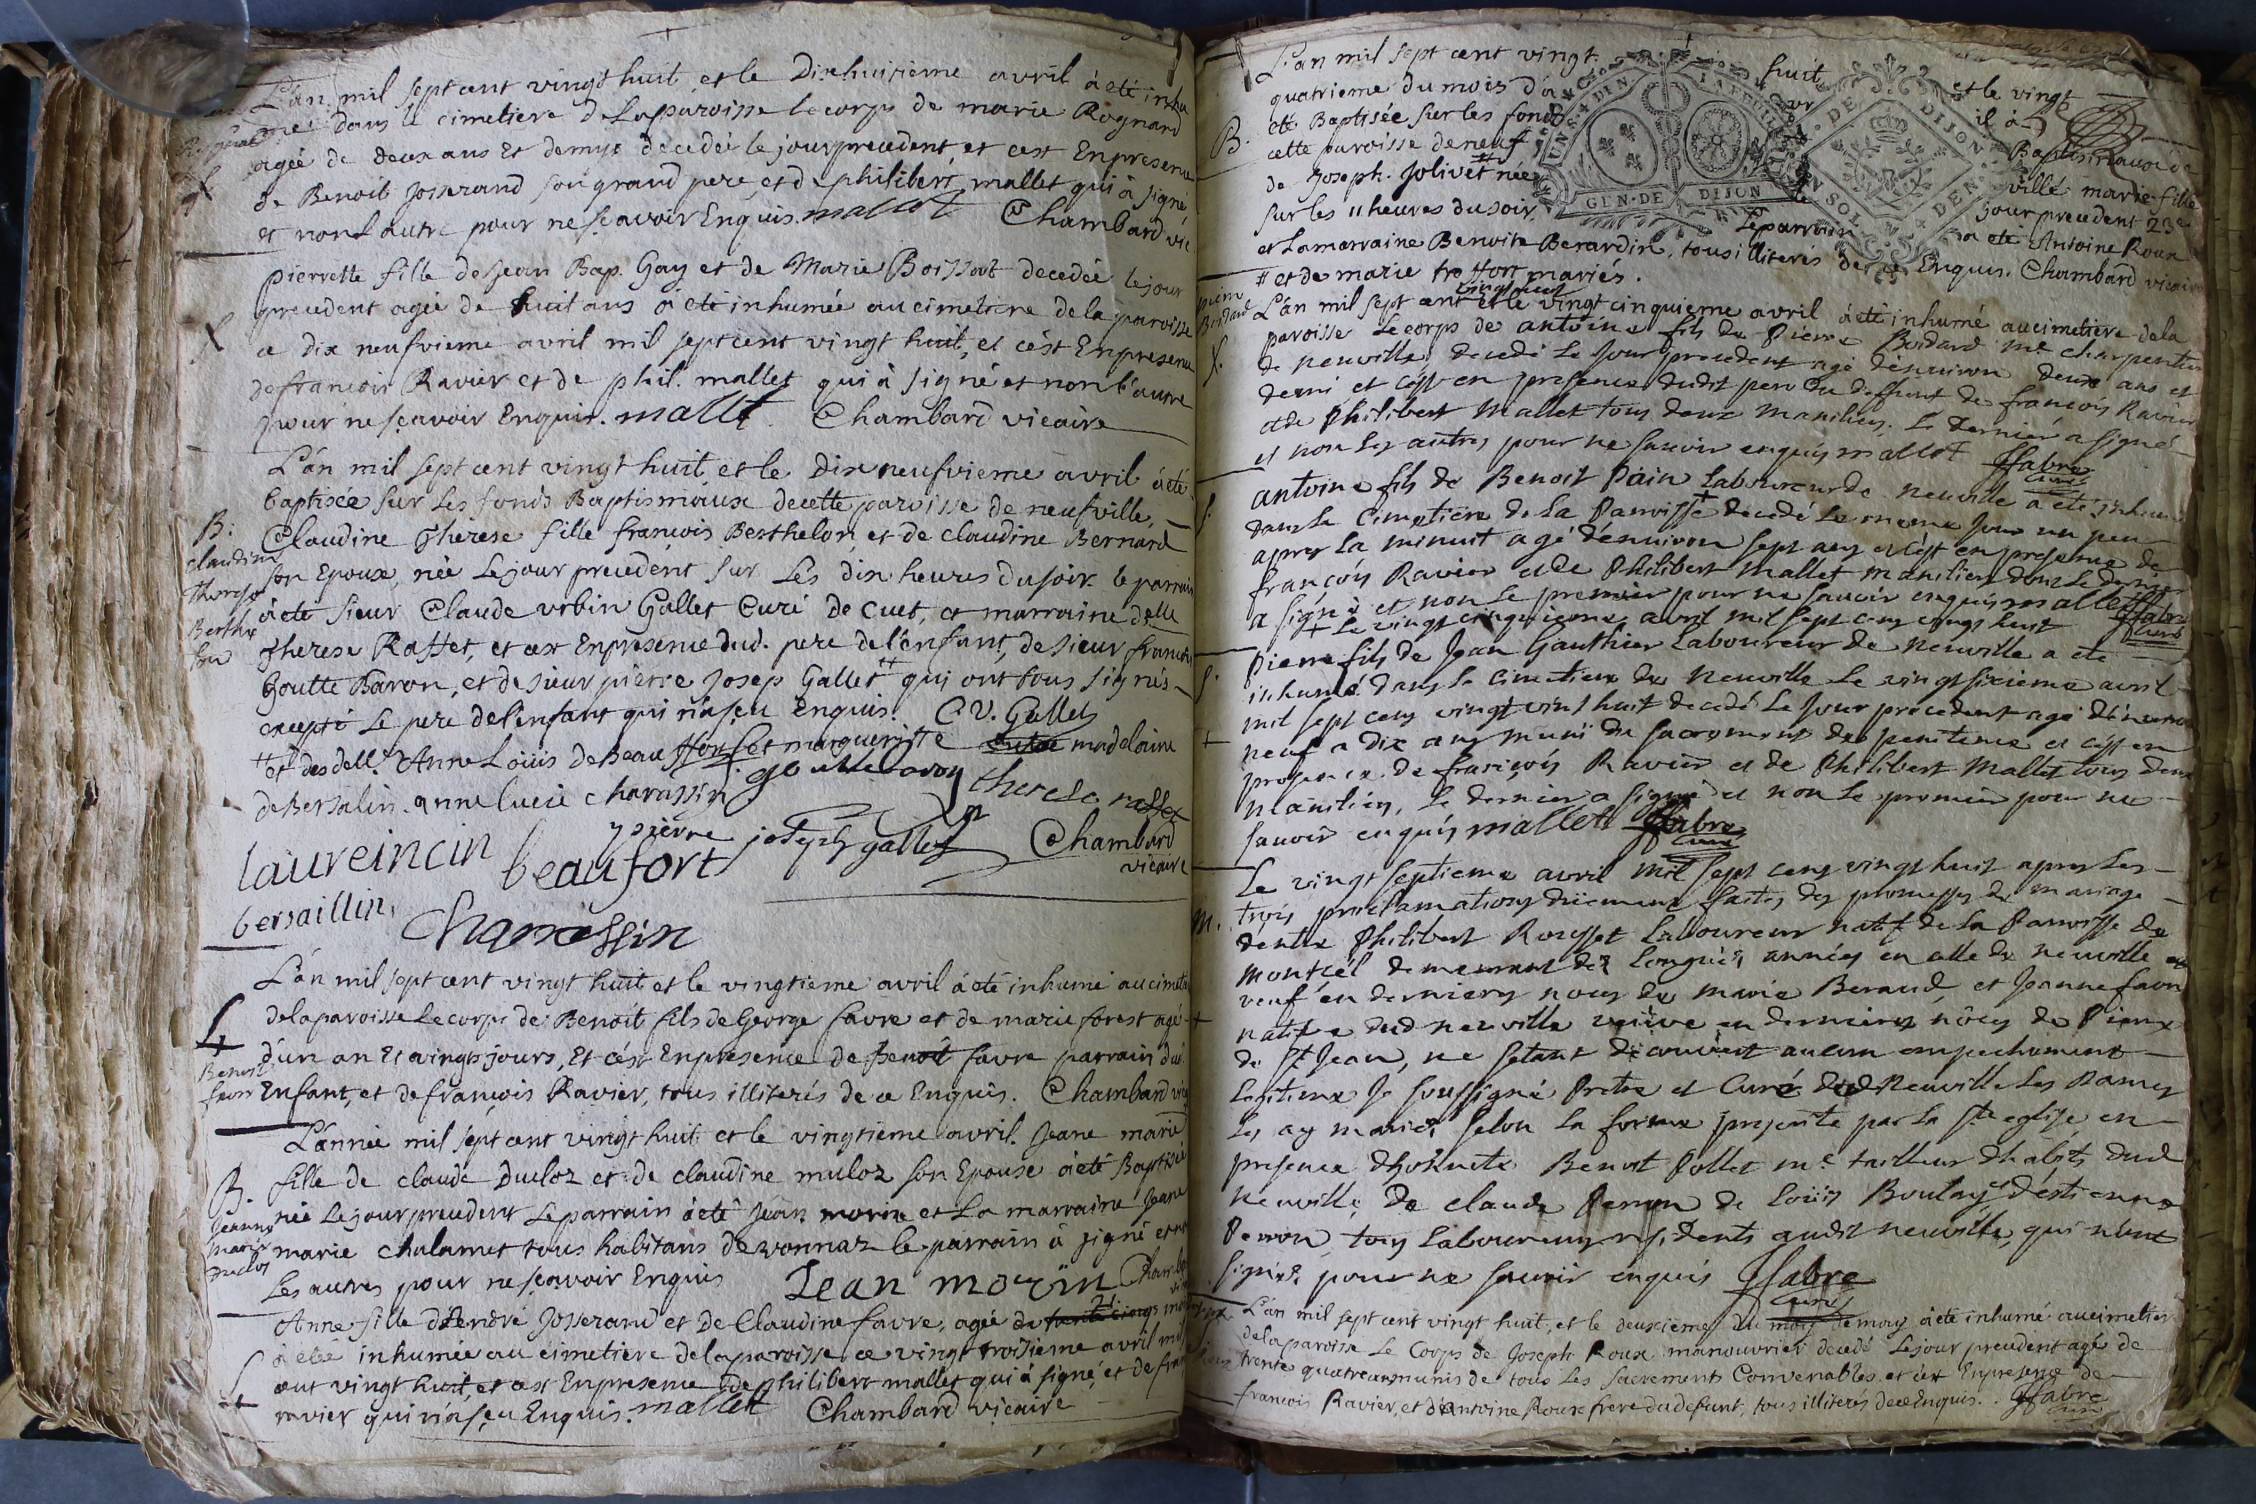 L'an mil sept cent vingt huit et le Dixhuitieme avril à eté inhu
mée dans le cimetiere de la paroisse le corps de marie Rognard
agée de deux ans et demye decedée le jour precedent et cest Enpresence
de Benoit Josserand son grand pere et de philibert mallet qui à signé
et non l'autre pour ne sçavoir Enquis. mallet Chambard vic
pierrette fille de Jean Bap. Gay et de Marie Boissat decedée le jour
precedent agée de huit ans à eté inhumée au cimetiere de la paroisse
ce dix neufvieme avril mil sept cent vingt huit, et cest Enpresence
de francois Ravier et de phil. mallet qui à signé et non l'autre
pour ne sçavoir Enquis. mallet Chambard vicaire
L'an mil sept cent vingt huit et le Dix neufvieme avril à eté
baptisée sur les fonds Baptismaux de cette paroisse de neufville,
B.
Claudine
therese
Berthe
lon
Claudine Therese fille francois Berthelon et de claudine Bernard
son Epoux, née le jour precedent sur les dix heures du soir le parrain
à eté sieur Claude urbin Gallet Curé de Cuet, et marraine delle
Therese Raffet, et cest Enpresence dud. pere de l'enfant, de sieur francois
Goutte Baron, et de sieur pierre Josep Gallet ++ qui ont tous signés
excepté le pere de l'enfant qui n'a sçeu enquis. C. V. Gallet
++ et des dell.s Anne Louis de Beauffort et margueritte madelaine
de Bersalin. anne lucie charassin goutte baron therese raffet
laureincin beaufort pierre joseph gallet Chambard
vicaire
bersaillin,
Charassin
L'an mil sept cent vingt huit et le vingtieme avril à eté inhumé au cimetie
de la paroisse le corps de Benoit fils de George favre et de marie forest agé
d'un an et vingt jours, Et cest Enpresence de Benoit favre parrain dud
Benoit
favre
Enfant, et de francois Ravier, tous illiterés de ce Enquis. Chambard vic
L'année mil sept cent vingt huit et le vingtieme avril. Jeane marie
B.
Jeanne
marie
duclos
fille de claude Ducloz et de claudine muloz son Epouse à eté Baptisée
née le jour precedent le parrain à eté Jean morin et la marraine Jeane
marie chalamet tous habitans de vonnaz le parrain à signé et non
Les autres pour ne sçavoir Enquis Jean morin Chamb
Anne fille d'Andre Josserand et de Claudine favre, agée de
à eté inhumée au cimetiere de la paroisse ce vingt troisieme avril mil
cent vingt huit, et cest Enpresence de philibert mallet qui à signé, et de fran
ravier qui n'a sçeu Enquis. mallet Chambard vicaire
L'an mil sept cent vingt huit et le vingt
B.
quatrieme du mois d'avril à
eté Baptisée sur les fonds Baptismaux de
cette paroisse de neufville marie fille
de Joseph Jolivet # née le jour precedent 23e
sur les 11 heures du soir Le parrain a eté Antoine Roux
et la marraine Benoite Berardin, tous illiterés de ce Enquis. Chambard vicaire
# et de marie troffort mariés.
GEN. DE DIJON
DE DIJON
L'an mil sept cent vingt huit et le vingt cinquieme avril à eté inhumé au cimetiere de la
paroisse le corps de antoine fils de Pierre Bordard me charpentier
de neuville, decedé le jour precedent agé d'environ deux ans et
demi et c'est en presence dudit pere du deffunt de françois Ravier
et de Philibert Mallet tous deux Manilier. Le dernier a signé
et non les autres pour ne savoir enquis mallet ffabre
curé
antoine fils de Benoit Pain Laboureur de neuville a eté inhumé
dans le cimetiere de la Parroisse + decedé le meme jour un peu
apres la minuit agé d'environ sept ans et c'est en presence de
françois Ravier et de Philibert Mallet maniliers dont le dernier
a signé et non le premier pour ne savoir enquis mallet ffabre
curé
+ le vingt cinquieme avril mil sept cens vingt huit
Pierre fils de Jean Gauthier Laboureur de neuville a eté
inhumé dans le cimetiere de neuville Le vingt sixieme avril
mil sept cens vingt huit decedé Le jour precedent agé d'environ
neuf a dix ans muni du sacrement de penitence et c'est en
presence de françois Ravier et de Philibert Mallet tous deux
Maniliers, Le dernier a signé et non le premier pour ne
savoir enquis mallet ffabre
curé
Le vingt septieme avril Mil sept cens vingt huit apres les
M.
trois proclamations düement faites des promesses de mariage
dentre Philibert Rousset Laboureur natif de la Parroisse de
montcél demeurant dez longues années en celle de neuville et
veuf en derniers nôces de marie Beraud, et Jeanne favre
native dud neuville veuve en dernieres nôces de Pierre
de St Jean, ne setant decouvert aucun empechement
Legitime Je soussigné Pretre et Curé dud Neuville Les Dames
les ay mariés selon la forme prescrite par la Ste eglise en
presence d'honnete Benoit Pollet me tailleur d'habits dud
neuville, de claude Perron de Loüis Boulay d'estienne
Perron tous Laboureurs residents audit neuville, qui n'ont
signés pour ne savoir enquis ffabre
curé
L'an mil sept cent vingt huit, et le deuxieme du mois de may à eté inhumé au cimetier
de la paroisse Le Corps de Joseph Roux manouvrier decedé Le jour precedent agé de
trente quatre ans munis de tous les sacrements Convenables. et c'est Enpresence de
francois Ravier, et d'Antoine Roux frere du defunt, tous illiterés de ce Enquis. ffabre
curé